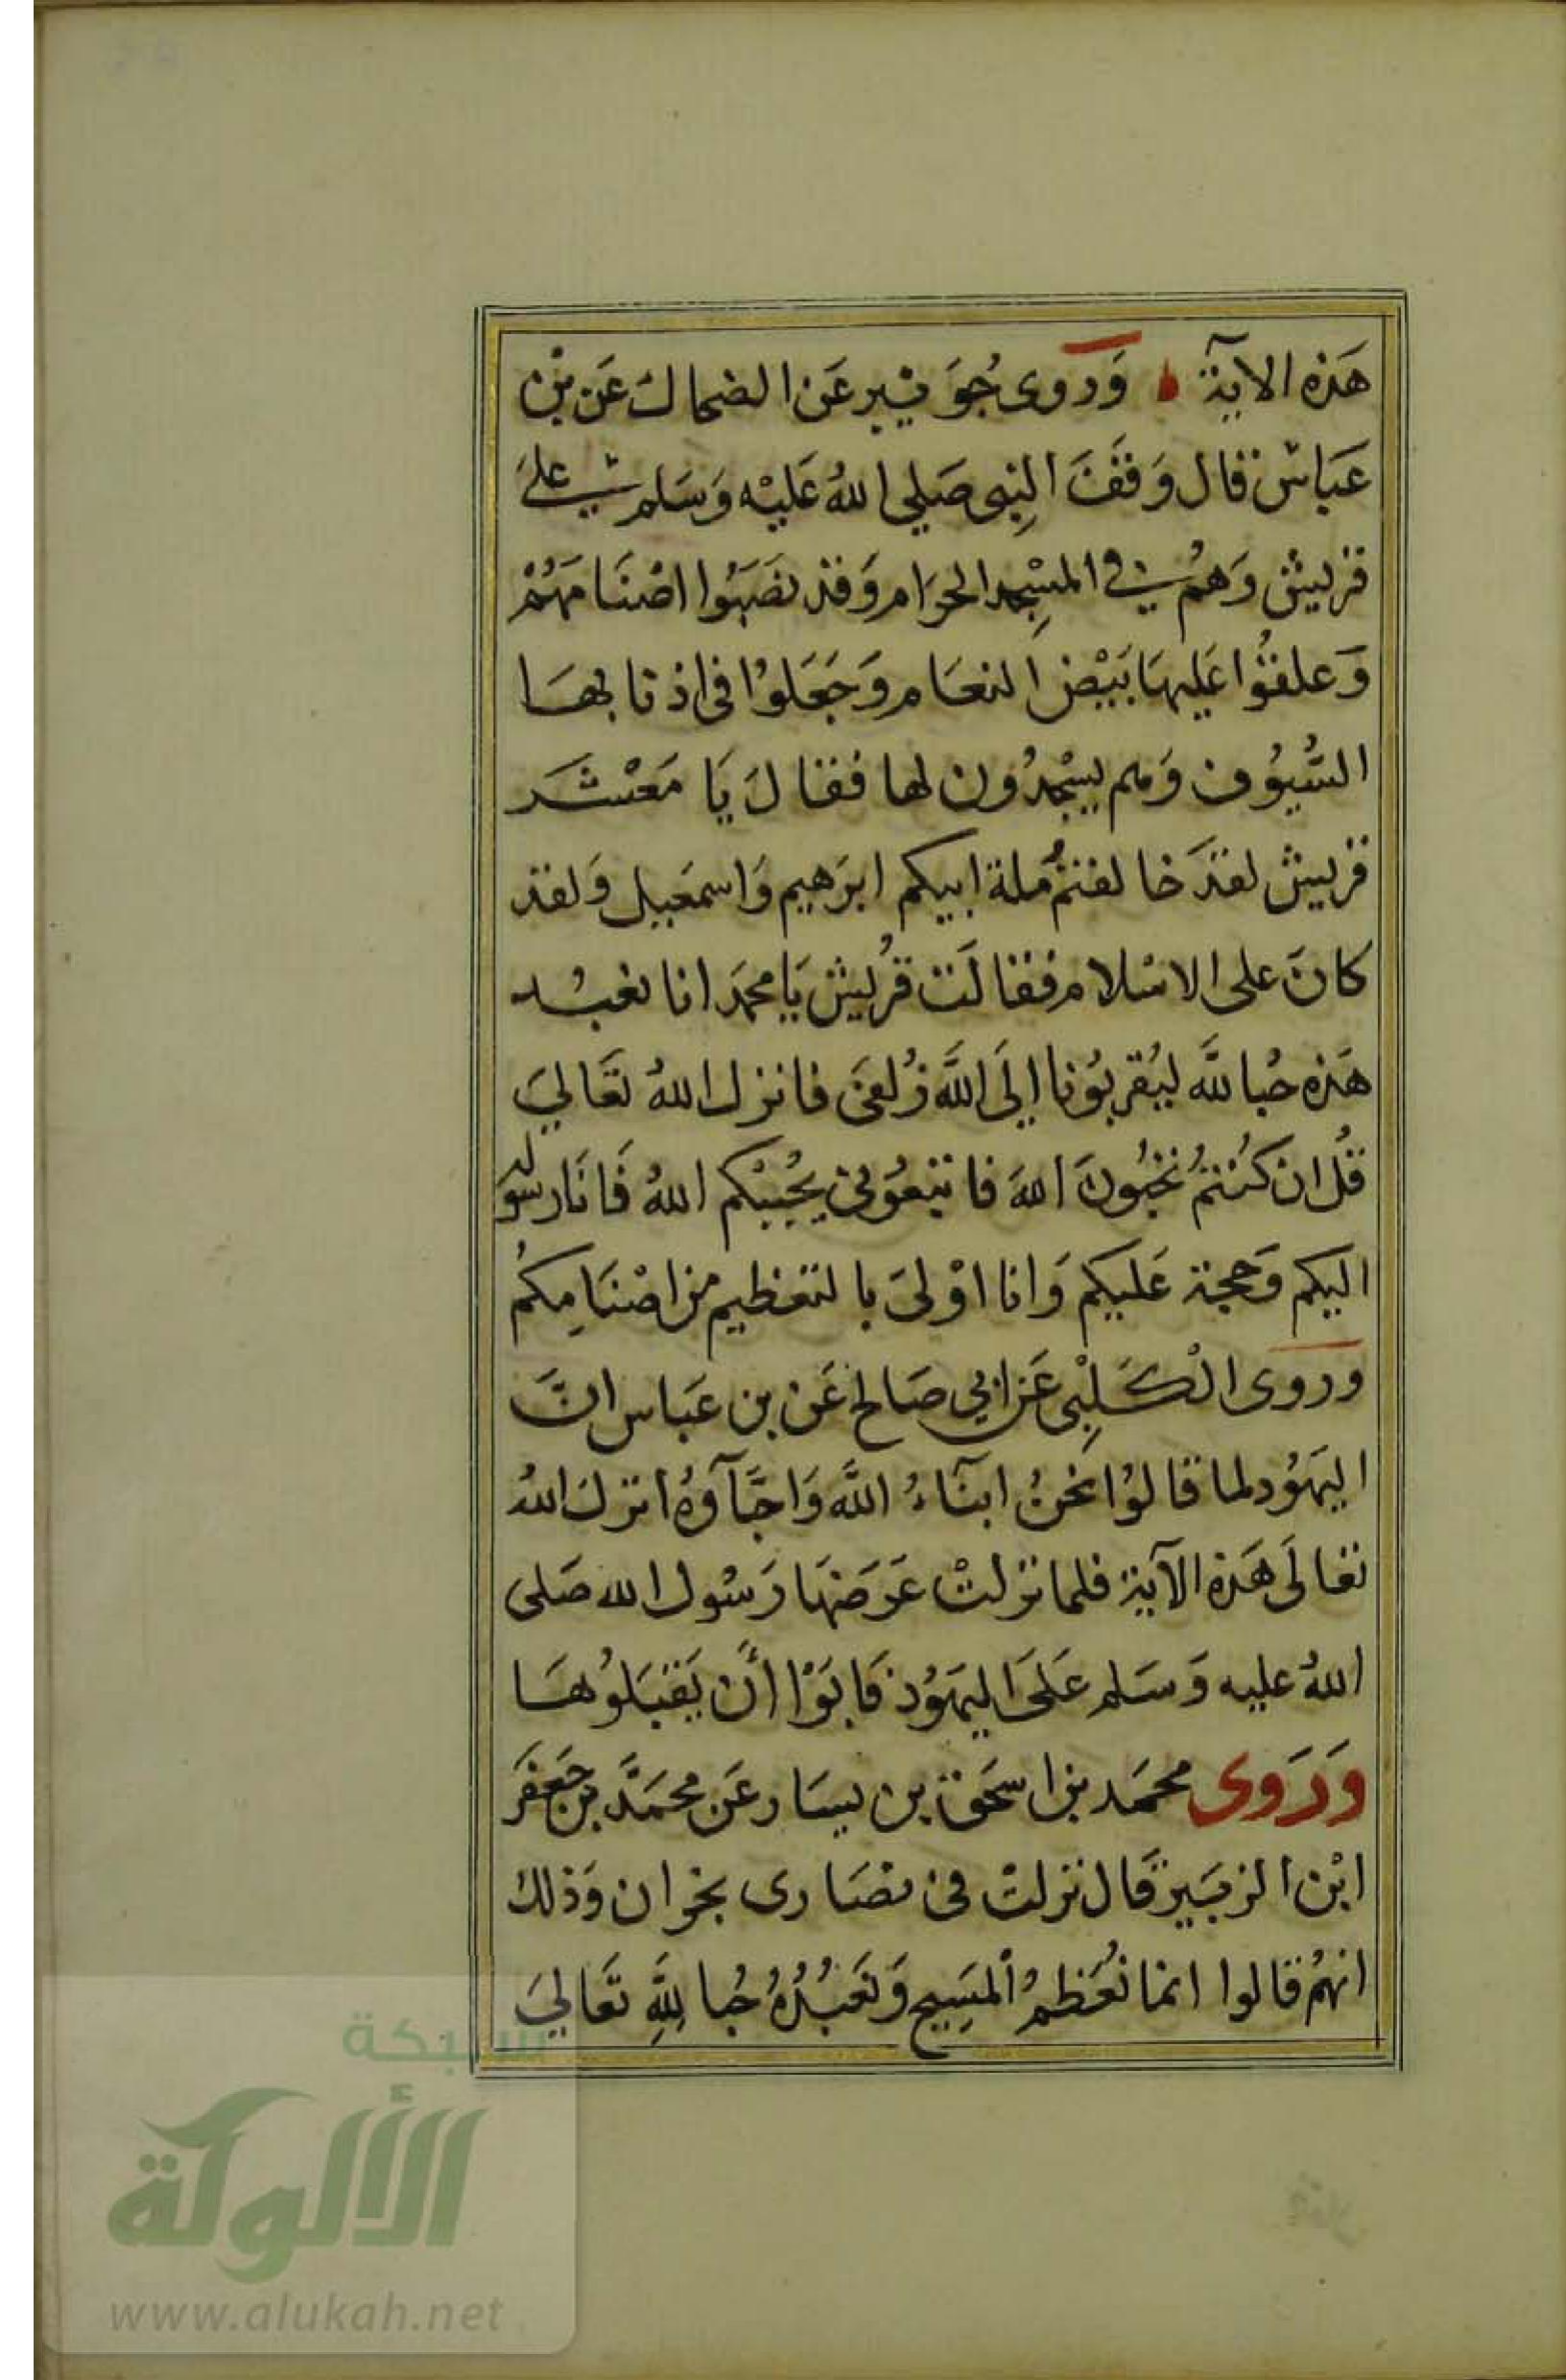 هَذه الآية وَروى جُوَيْبِر عَن الضحاك عَن بن
عَبَاسٍ قال وَقَفَ النبِي صَلى اللهُ عَليْه وَسَلم على
قريش وَهُم في المسْجِد الحرَام وَقد نصَبُوا اصْنَامَهُمْ
وَعلقوُا عَليهَا بَيْضَ النعَام وَجَعَلوْا في اذنابهَا
السُّيوُف وَهم يسْجدُون لها فقالَ يَا مَعْشَر
قريش لقدَ خالفتمُ ملة ابيكم ابرَهيم وَاسمَعيل وَلقد
كانَ على الاسْلام فقالَت قرُيش يَا محمدَ انا نعبُد
هَذه حُبا للَّه ليُقربوُنا إلَى اللَّه زُلفىَ فانزل اللهُ تعَالىَ
قلُ ان كنُتمُ تحُبُونَ اللهَ فاتبعوُني يحُببْكم اللهُ فَانَا رسوله
اليكم وَحجة عَليكم وَانا اوْلىَ بالتعظيم من اصْنَامِكمُ
وروى الْكَلبِى عَن ابي صَالح عَن بن عَبَاس انَّ
اليهَوُد لما قالوُا نحَنُ ابنَآءُ اللَّه وَاحبَّآؤهُ انزل اللهُ
تعالَى هَذه الآية فلما نزلتْ عَرَضَهَا رَسُول الله صَلى
اللهُ عليه وَسَلم عَلىَ اليهَوُد فَابَوْا أَن يَقبَلوُهَا
وَرَوى محمَد بن اسحَق بن يسَار عَن محمَدَّ بن جَعفَر
ابْن الزبَير قَال نزلتْ في نصَارى نجران وَذلك
انهمُ قالوا انما نُعَظمُ المسَيِح وَنَعبُدُهُ حُبا للَّهِ تعَالىَ
شبكة
الألوكة
www.alukah.net